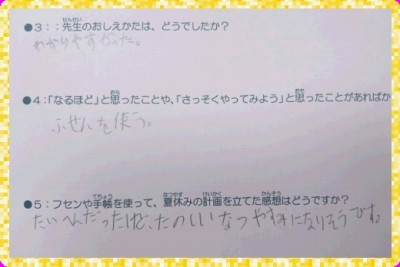 ●3：：先生のおしえかたは、どうでしたか？
わかりやすかった。
●4：「なるほど」と思ったことや、「さっそくやってみよう」と思ったことがあればか
ふせんを使う。
●5：フセンや手帳を使って、夏休みの計画を立てた感想はどうですか？
たいへんだったけど、たのしいなつやすみになりそうです。